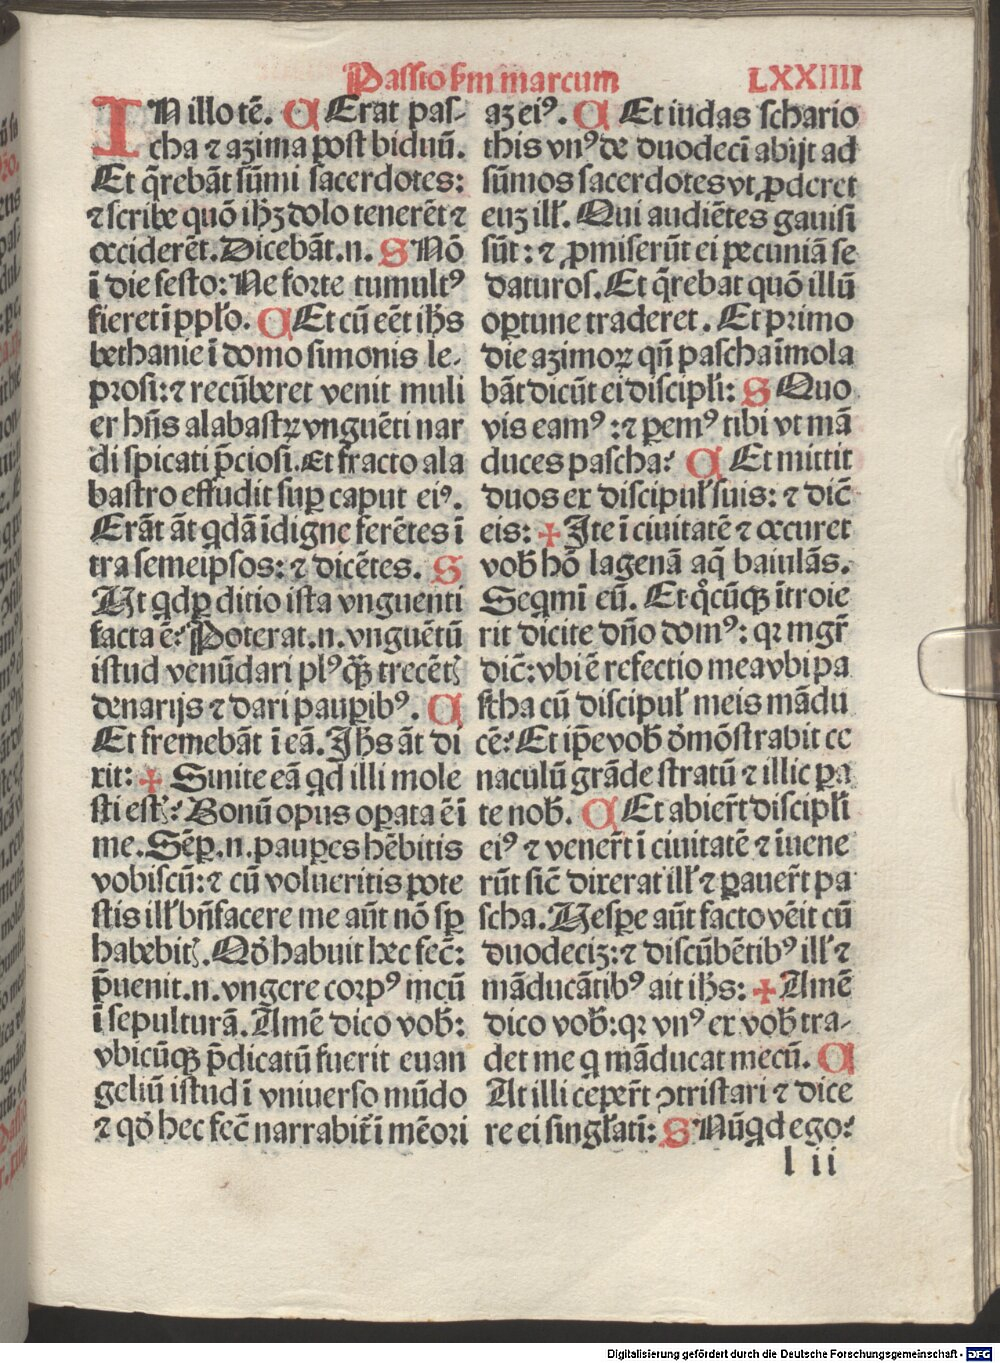 Passio s̄m marcum LXXIIII
IN illo tē. C Erat pas-
cha ⁊ azima post biduū.
Et q̄rebāt sūmi sacerdotes:
⁊ scribe quō ihꝫ dolo tenerēt ⁊
occiderēt. Dicebāt.n. S Nō
ī die festo: Ne forte tumultꝰ
fieret ī ppl̄o. C Et cū eēt ih̄s
bethanie ī domo simonis le-
prosi: ⁊ recūberet venit muli
er hn̄s alabastꝝ vnguēti nar
di spicati p̄ciosi. Et fracto ala
bastro effudit suꝑ caput eiꝰ.
Erāt āt qdā īdigne ferētes ī
tra semeipsos: ⁊ dicētes. S
Ut qd ꝑditio ista vnguenti
facta ē? Poterat.n. vnguētū
istud venūdari plꝰ qꝫ̄ trecētꝭ
denarijs ⁊ dari pauꝑibꝰ. C
Et fremebāt ī eā. Ih̄s āt di
xit: ✠ Sinite eā qd illi mole
sti estꝭ? Bonū opus oꝑata ē ī
me. Sēꝑ.n. pauꝑes hēbitis
vobiscū: ⁊ cū volueritis pote
stis ill̄ bn̄facere me aūt nō sꝑ
habebitꝭ. Qd̓ habuit hec fec̄:
p̄uenit.n. vngere corpꝰ meū
ī sepulturā. Amē dico vob̄:
vbicūqꝫ p̄dicatū fuerit euan
geliū istud ī vniuerso mūdo
⁊ qd̓ hec fec̄ narrabit̄ ī mēori
aꝫ eiꝰ. C Et iudas schario
this vnꝰ de duodecī abijt ad
sūmos sacerdotes vt ꝓderet
euꝫ ill̄. Qui audiētes gauisi
sūt: ⁊ ꝓmiserūt ei pecuniā se
daturos. Et q̄rebat quō illū
optune traderet. Et primo
die azimoꝝ qn̄ pascha īmola
bāt dicūt ei discipl̄i: S Quo
vis eamꝰ: ⁊ ꝑemꝰ tibi vt mā
duces pascha? C Et mittit
duos ex discipul̄ suis: ⁊ dic̄
eis: ✠ Ite ī ciuitatē ⁊ occuret
vob̄ hō lagenā aq̄ baiulās.
Seqmī eū. Et q̊cūqꝫ ītroie
rit dicite dn̄o domꝰ: qꝛ mgr̄
dic̄: vbi ē refectio mea vbi pa
scha cū discipul̄ meis mādu
cē? Et ip̄e vob̄ d̓mōstrabit ce
naculū grāde stratū ⁊ illic ꝑa
te nob̄. C Et abier̄t discipl̄i
eiꝰ ⁊ vener̄t ī ciuitatē ⁊ īuene
rūt sic̄ dixerat ill̄ ⁊ ꝑauer̄t pa
scha. Uespe aūt facto vēit cū
duodeciꝫ: ⁊ discūbētibꝰ ill̄ ⁊
māducātibꝰ ait ih̄s: ✠ Amē
dico vob̄: qꝛ vnꝰ ex vob̄ tra-
det me q māducat mecū. C
At illi ceper̄t ꝯtristari ⁊ dice
re ei singl̄atī: S Nūqd ego?
l ii
Digitalisierung gefördert durch die Deutsche Forschungsgemeinschaft - DFG